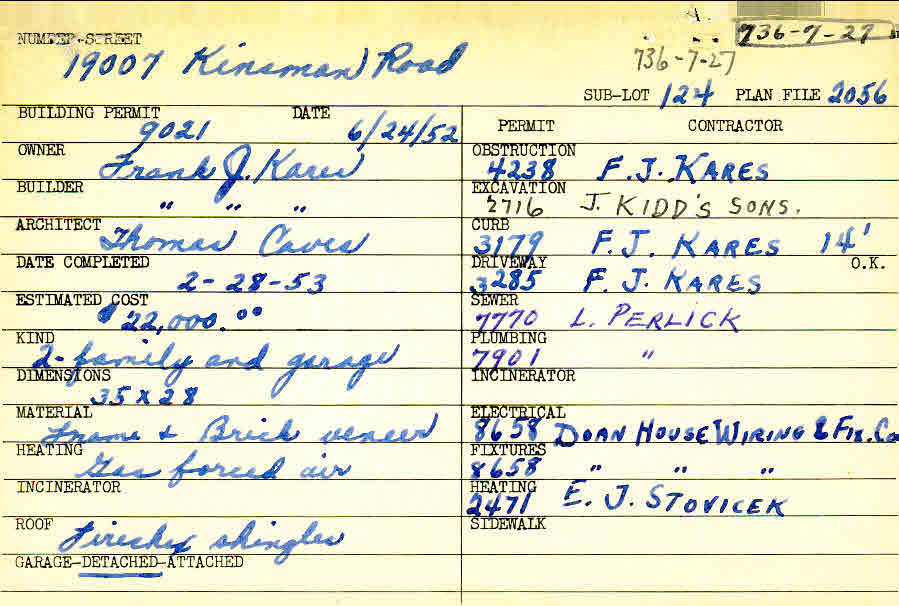 736-7-27
NUMBER-STREET
19007 Kinsman Road
736-7-27
SUB-LOT 124 PLAN FILE 2056
BUILDING PERMIT DATE
9021 6/24/52
OWNER
Frank J. Kares
BUILDER
" " "
ARCHITECT
Thomas Caves
DATE COMPLETED
2-28-53
ESTIMATED COST
$22,000.00
KIND
2-family and garage
DIMENSIONS
35 x 28
MATERIAL
Frame & Brick veneer
HEATING
Gas forced air
INCINERATOR
ROOF
shingles
GARAGE-DETACHED-ATTACHED
PERMIT CONTRACTOR
OBSTRUCTION
4238 F. J. KARES
EXCAVATION
2716 J. KIDD'S SONS.
CURB
3179 F. J. KARES 14'
DRIVEWAY O.K.
3285 F. J. KARES
SEWER
7770 L. PERLICK
PLUMBING
7901 "
INCINERATOR
ELECTRICAL
8658 DOAN HOUSE WIRING & FIX. Co
FIXTURES
8658 " " "
HEATING
2471 E. J. STOVICEK
SIDEWALK